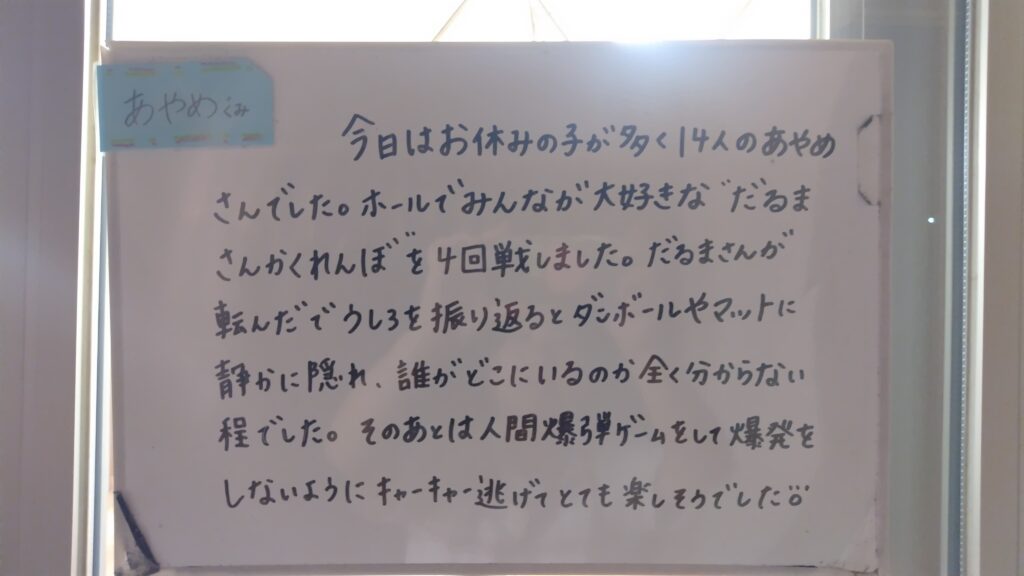 あやめぐみ
今日はお休みの子が多く14人のあやめ
さんでした。ホールでみんなが大好きな〝だるま
さんかくれんぼ〟を4回戦しました。だるまさんが
転んだでうしろを振り返るとダンボールやマットに
静かに隠れ、誰がどこにいるのか全く分からない
程でした。そのあとは人間爆弾ゲームをして爆発を
しないようにキャーキャー逃げてとても楽しそうでした